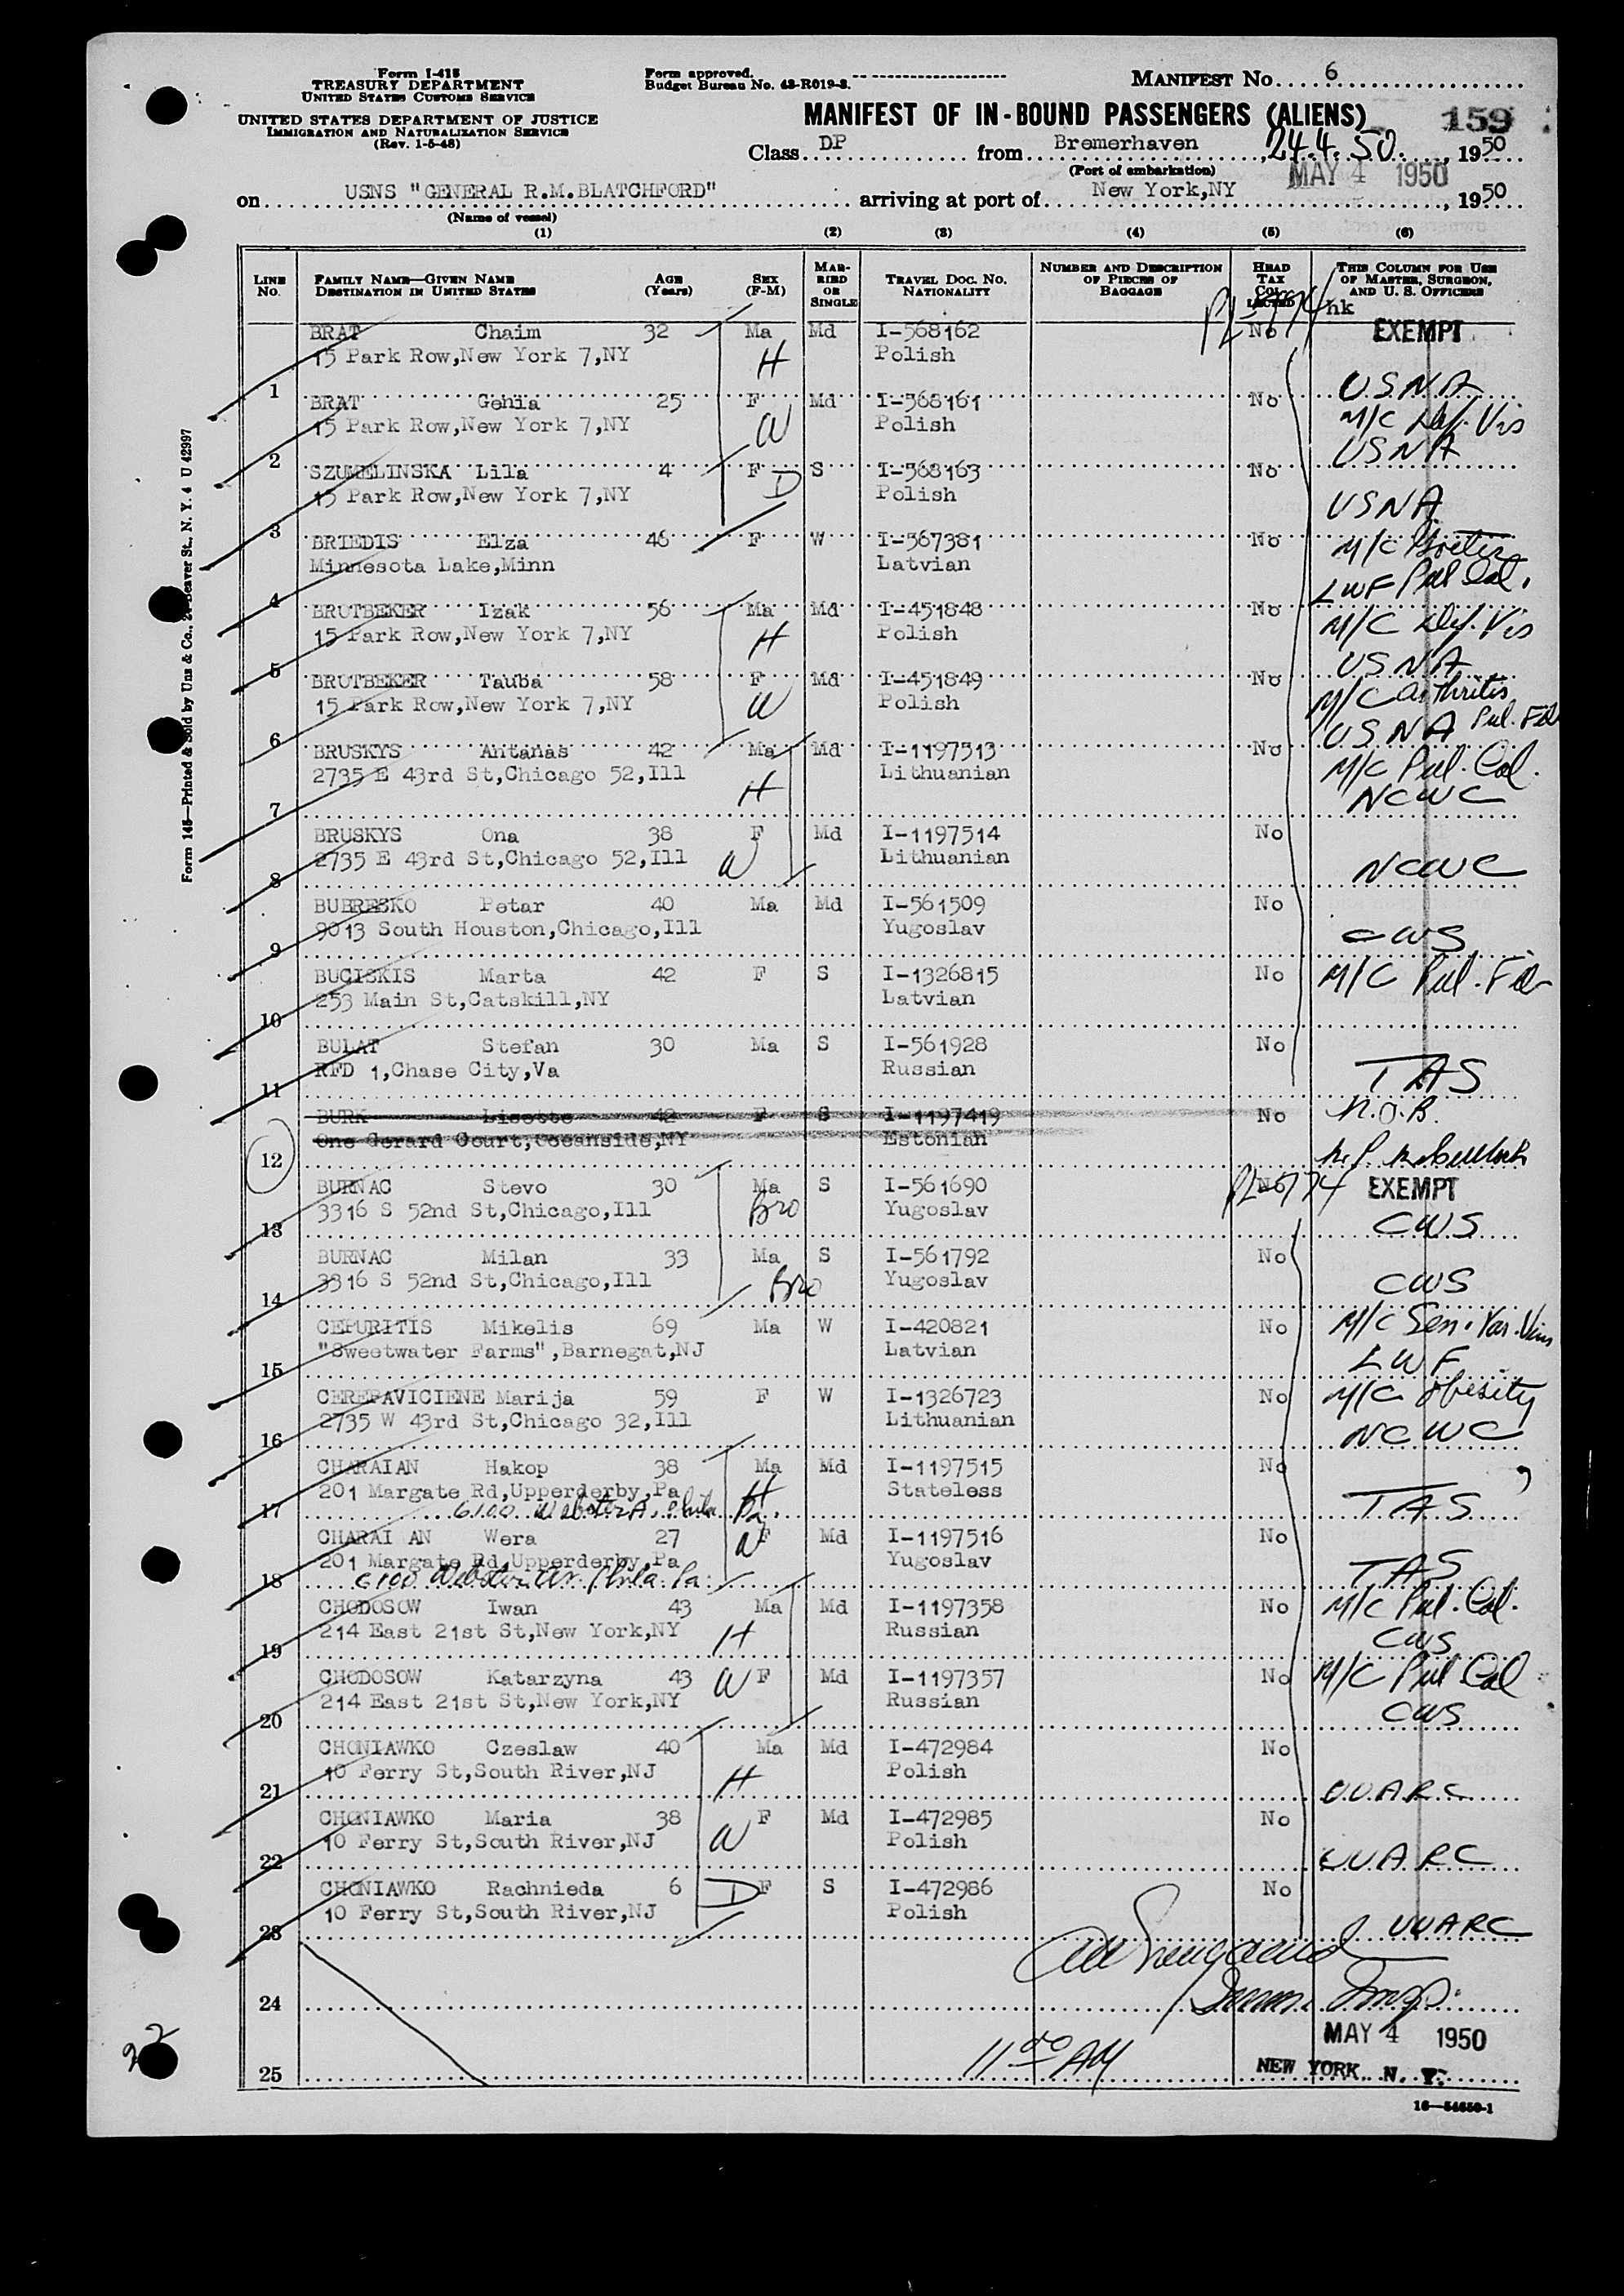 Form I-418
TREASURY DEPARTMENT
UNITED STATES CUSTOMS SERVICE
UNITED STATES DEPARTMENT OF JUSTICE
IMMIGRATION AND NATURALIZATION SERVICE
(Rev. 1-5-48)
Form approved.
Budget Bureau No. 43-R019-3.
MANIFEST No. 6
MANIFEST OF IN-BOUND PASSENGERS (ALIENS)
159
Class DP from Bremerhaven, 24.4.50., 1950
(Port of embarkation)
MAY 4 1950
on USNS "GENERAL R.M.BLATCHFORD" arriving at port of New York,NY, 1950
(Name of vessel)
(1) (2) (3) (4) (5) (6)
LINE No. FAMILY NAME—GIVEN NAME DESTINATION IN UNITED STATES AGE (Years) SEX (F-M) MARRIED OR SINGLE TRAVEL DOC. NO. NATIONALITY NUMBER AND DESCRIPTION OF PIECES OF BAGGAGE HEAD TAX COLLECTED THIS COLUMN FOR USE OF MASTER, SURGEON, AND U. S. OFFICERS
PL-774 hk
BRAT Chaim 32 Ma Md I-568162 No EXEMPT
15 Park Row,New York 7,NY H Polish
1 USNA
BRAT Gehia 25 F Md I-568161 No M/C Def. Vis
15 Park Row,New York 7,NY W Polish
2 USNA
SZUMELINSKA Lila 4 F D S I-568163 No
15 Park Row,New York 7,NY Polish
3 USNA
BRIEDIS Elza 46 F W I-567381 No M/C Goiter
Minnesota Lake,Minn Latvian
4 LWF Pul Cal.
BROTBEKER Izak 56 Ma Md I-451848 No M/C Def. Vis
15 Park Row,New York 7,NY H Polish
5 USNA
BROTBEKER Tauba 58 F Md I-451849 No M/C Arthritis
15 Park Row,New York 7,NY W Polish Pul. Fib
6 USNA
BRUSKYS Antanas 42 Ma Md I-1197513 No M/C Pul. Cal.
2735 E 43rd St,Chicago 52,Ill H Lithuanian
7 NCWC
BRUSKYS Ona 38 F Md I-1197514 No
2735 E 43rd St,Chicago 52,Ill W Lithuanian
8 NCWC
BUBRESKO Petar 40 Ma Md I-561509 No
9013 South Houston,Chicago,Ill Yugoslav
9 CWS
BUCISKIS Marta 42 F S I-1326815 No M/C Pul. Fib
253 Main St,Catskill,NY Latvian
10
BULAT Stefan 30 Ma S I-561928 No
RFD 1,Chase City,Va Russian
11 TAS
BURK Lisette 42 F S I-1197419 No N.O.B.
One Gerard Court,Oceanside,NY Estonian
12
BURNAC Stevo 30 Ma S I-561690 No PL-774 EXEMPT
3316 S 52nd St,Chicago,Ill Bro Yugoslav
13 CWS
BURNAC Milan 33 Ma S I-561792 No
3316 S 52nd St,Chicago,Ill Bro Yugoslav
14 CWS
CEPURITIS Mikelis 69 Ma W I-420821 No M/C Sen. Var. Veins
"Sweetwater Farms",Barnegat,NJ Latvian
15 LWF
CEREPAVICIENE Marija 59 F W I-1326723 No M/C Obesity
2735 W 43rd St,Chicago 32,Ill Lithuanian
16 NCWC
CHARAIAN Hakop 38 Ma Md I-1197515 No
201 Margate Rd,Upperderby,Pa H Stateless
17 6100 Webster A. Phila Pa. TAS
CHARAI AN Wera 27 F W Md I-1197516 No
201 Margate Rd,Upperderby,Pa Yugoslav
18 6100 Webster Av. Phila. Pa. TAS
CHODOSOW Iwan 43 Ma Md I-1197358 No M/C Pul. Cal.
214 East 21st St,New York,NY H Russian
19 CWS
CHODOSOW Katarzyna 43 W F Md I-1197357 No M/C Pul Cal
214 East 21st St,New York,NY Russian
20 CWS
CHONIAWKO Czeslaw 40 Ma Md I-472984 No
10 Ferry St,South River,NJ H Polish
21 UUARC
CHONIAWKO Maria 38 F Md I-472985 No
10 Ferry St,South River,NJ W Polish
22 UUARC
CHONIAWKO Rachnieda 6 D F S I-472986 No
10 Ferry St,South River,NJ Polish
23 UUARC
24 Immi. Insp.
MAY 4 1950
11 00 AM
25 NEW YORK. N. Y.
16—54650-1
22
Form 145—Printed & Sold by Unz & Co., Beaver St., N. Y. 4 U 42997